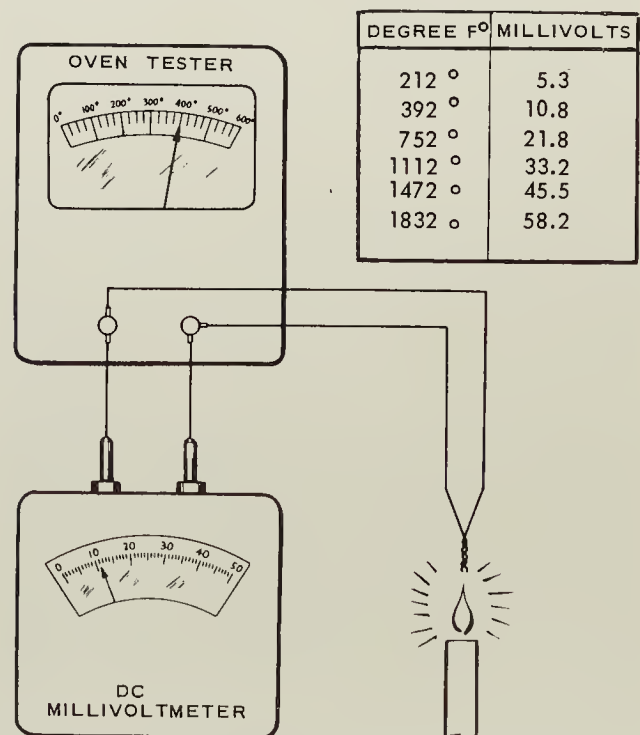 DEGREE F° MILLIVOLTS
212 ° 5.3
392 ° 10.8
752 ° 21.8
1112 ° 33.2
1472 ° 45.5
1832 ° 58.2
OVEN TESTER
0° 100° 200° 300° 400° 500° 600°
0 10 20 30 40 50
DC
MILLIVOLTMETER